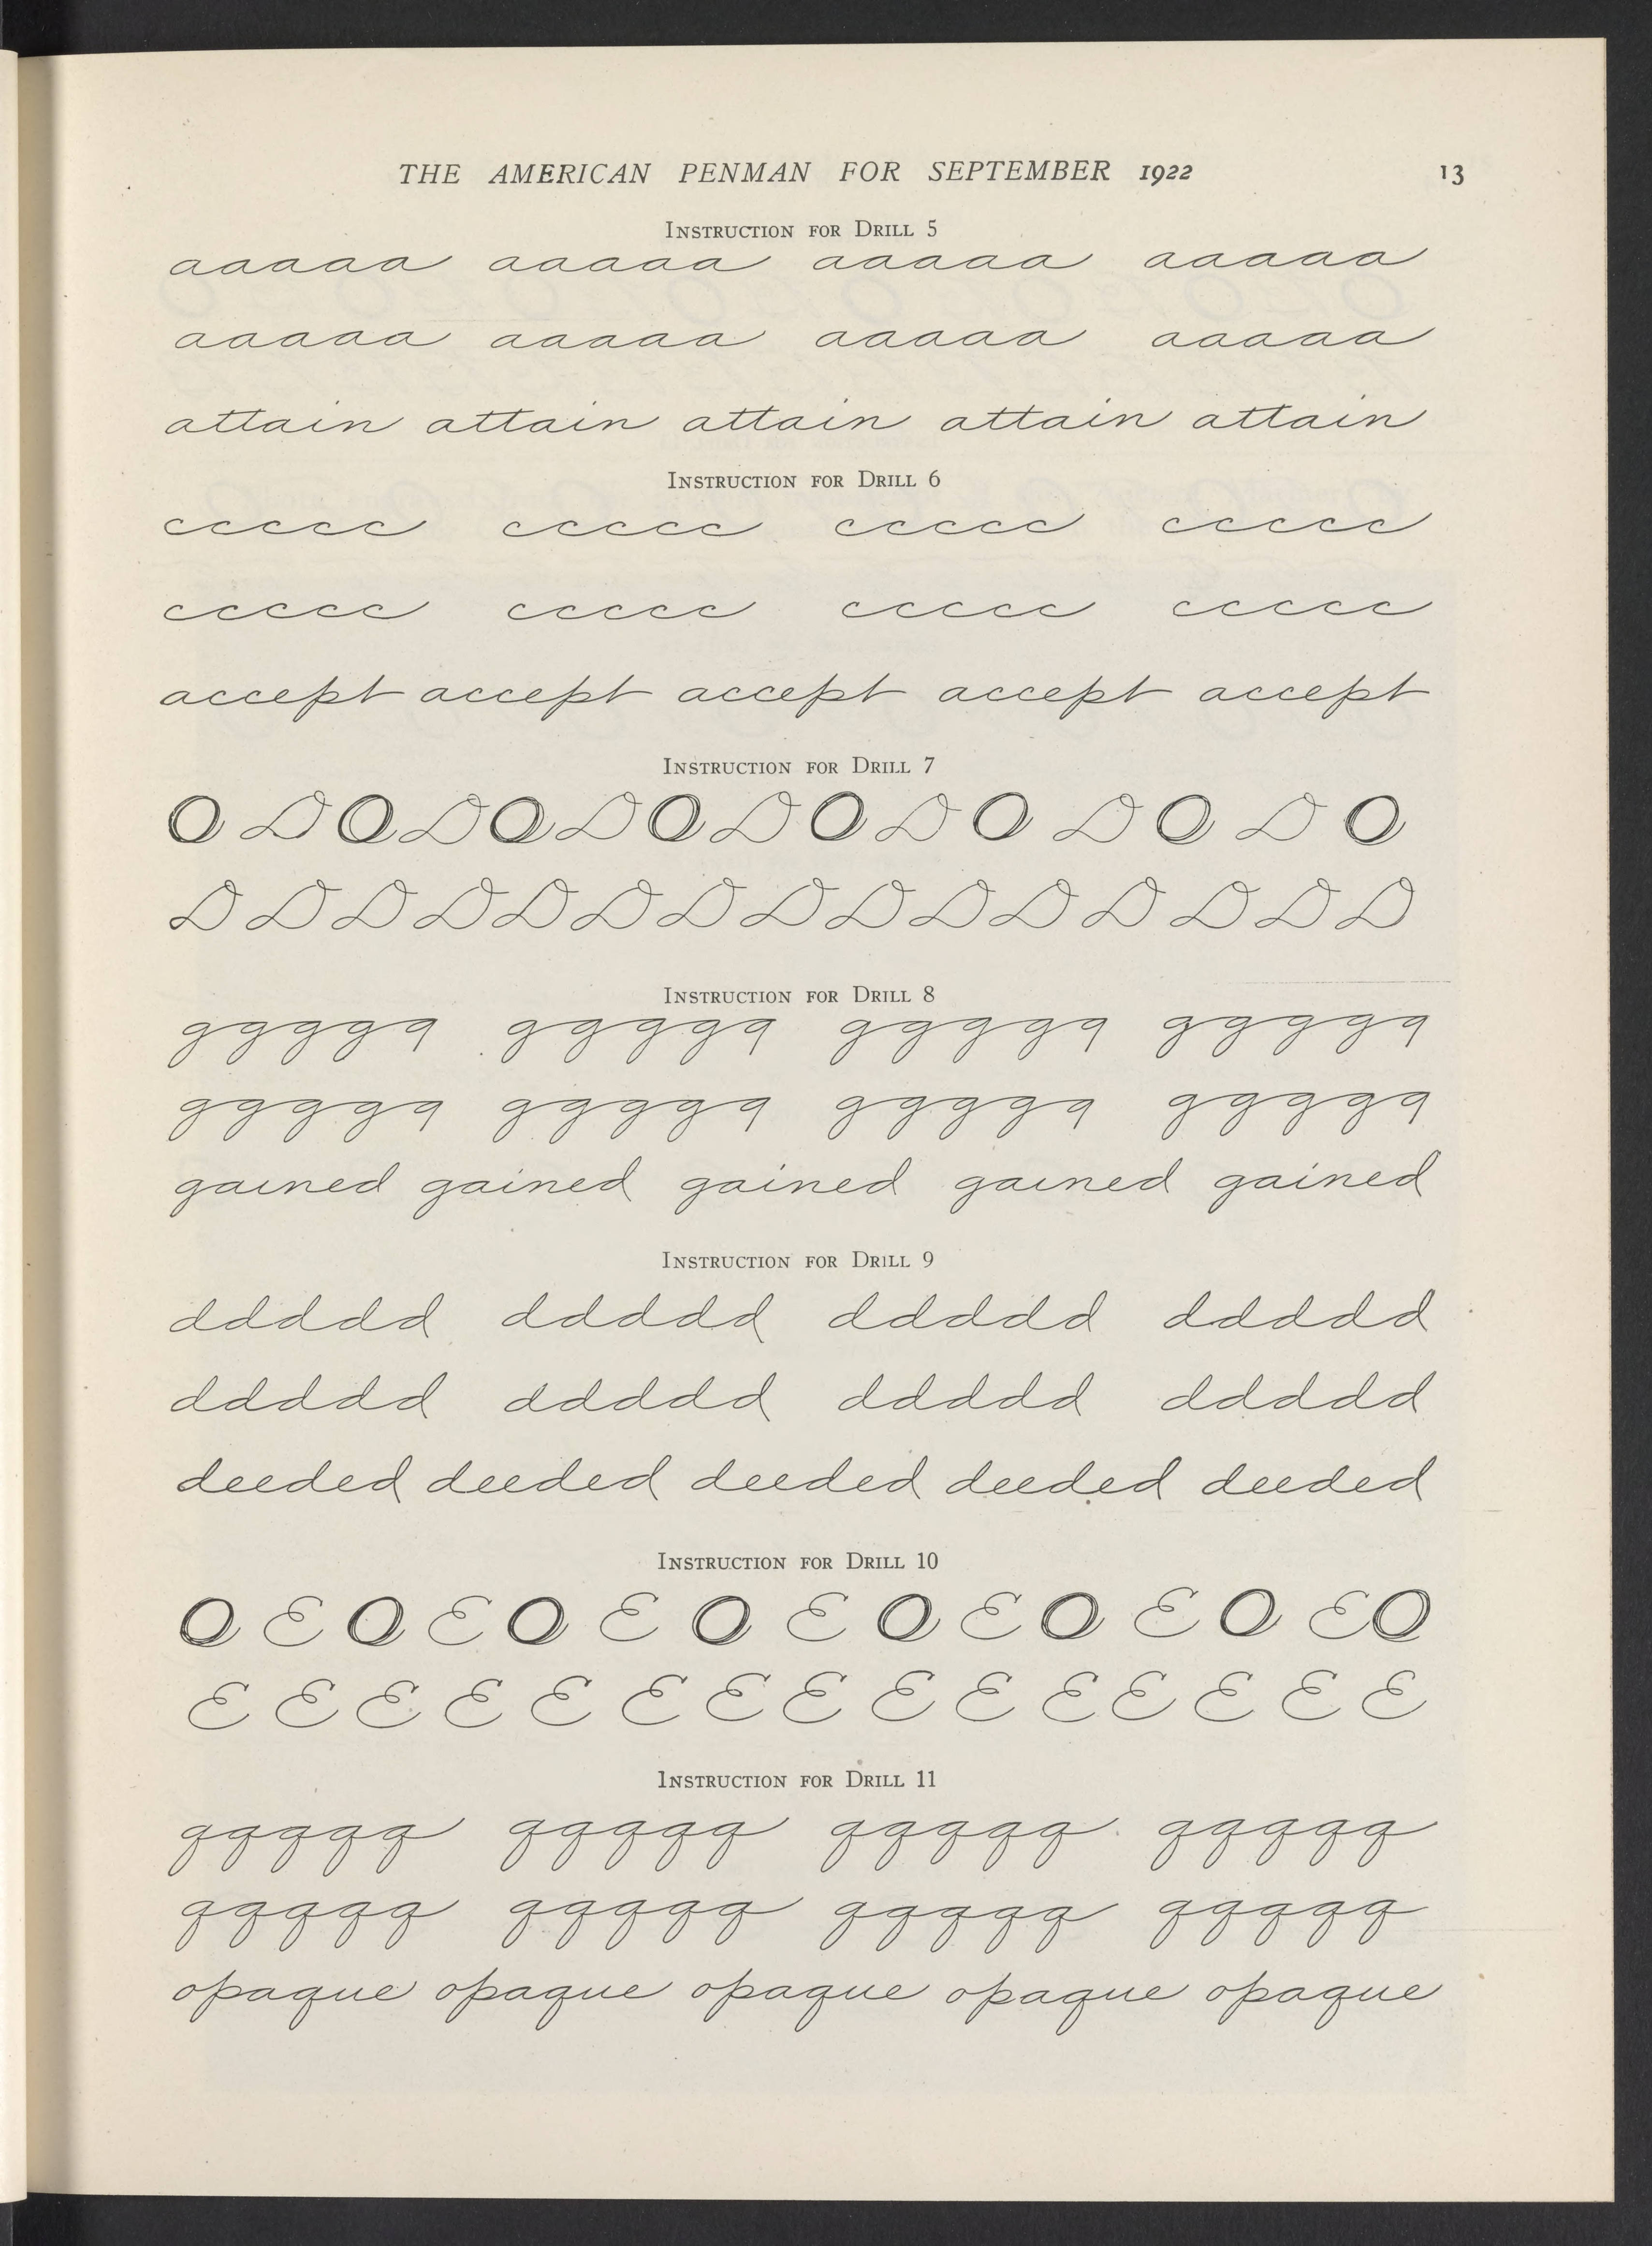 THE AMERICAN PENMAN FOR SEPTEMBER 1922 13
INSTRUCTION FOR DRILL 5
aaaaa aaaaa aaaaa aaaaa
aaaaa aaaaa aaaaa aaaaa
attain attain attain attain attain
INSTRUCTION FOR DRILL 6
ccccc ccccc ccccc ccccc
ccccc ccccc ccccc ccccc
accept accept accept accept accept
INSTRUCTION FOR DRILL 7
O D O D O D O D O D O D O D O
D D D D D D D D D D D D D D D
INSTRUCTION FOR DRILL 8
ggggg ggggg ggggg ggggg
ggggg ggggg ggggg ggggg
gained gained gained gained gained
INSTRUCTION FOR DRILL 9
ddddd ddddd ddddd ddddd
ddddd ddddd ddddd ddddd
deeded deeded deeded deeded deeded
INSTRUCTION FOR DRILL 10
O E O E O E O E O E O E O E O
E E E E E E E E E E E E E E E
INSTRUCTION FOR DRILL 11
qqqqq qqqqq qqqqq qqqqq
qqqqq qqqqq qqqqq qqqqq
opaque opaque opaque opaque opaque